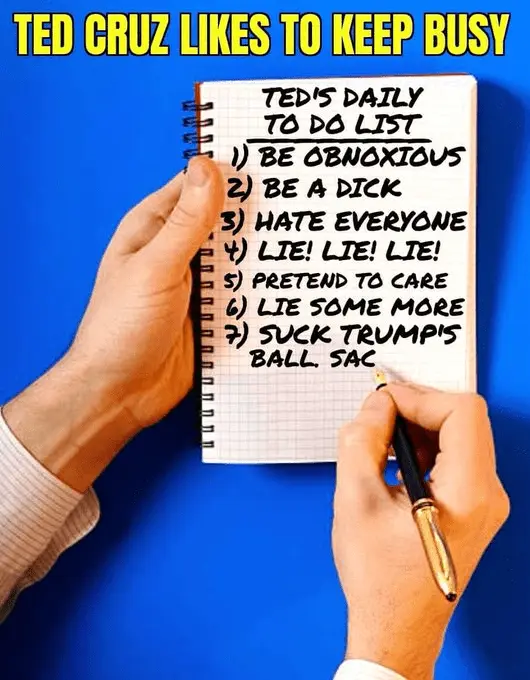 TED CRUZ LIKES TO KEEP BUSY
TED'S DAILY
TO DO LIST
1) BE OBNOXIOUS
2) BE A DICK
3) HATE EVERYONE
4) LIE! LIE! LIE!
5) PRETEND TO CARE
6) LIE SOME MORE
7) SUCK TRUMP'S
BALL. SAC